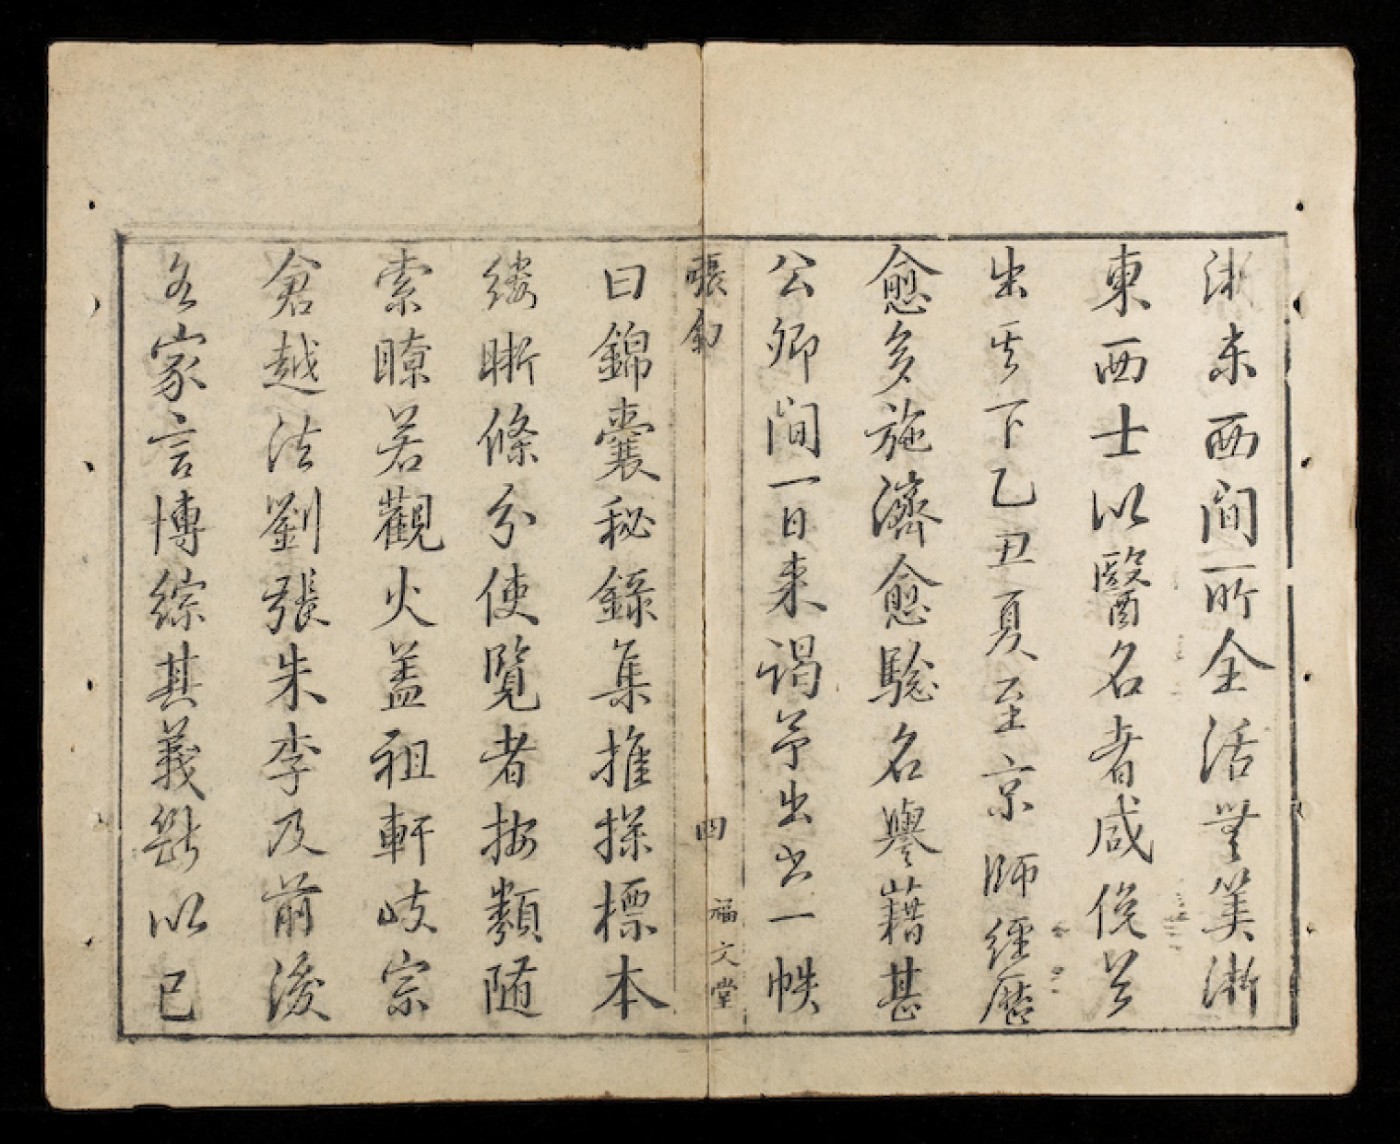 浙東西間所全活無筭浙
東西士以醫名者咸俛首
出其下乙丑夏至京師經歷
愈多施濟愈騐名譽藉甚
公卿間一日来謁予出书一帙
張
四
福文堂
曰錦囊秘錄集推探標本
縷晰條分使覽者按類随
索瞭若觀火盖祖軒岐宗
倉越法劉張朱李及前後
各家言博綜其義斷以己